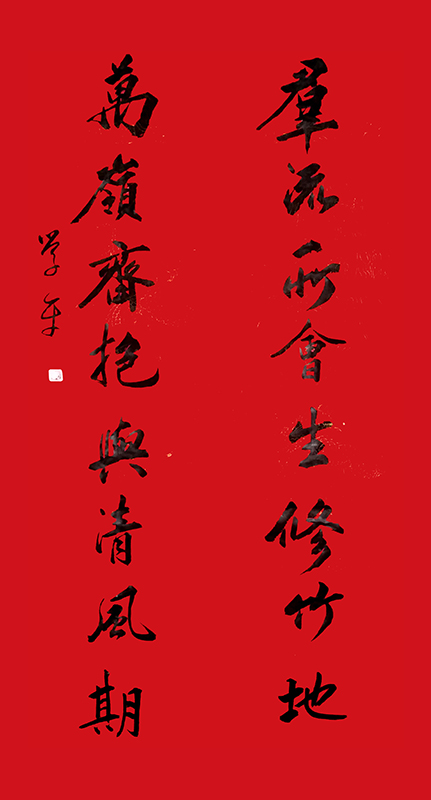 羣流所會生修竹地
萬嶺齊抱與清風期
学平